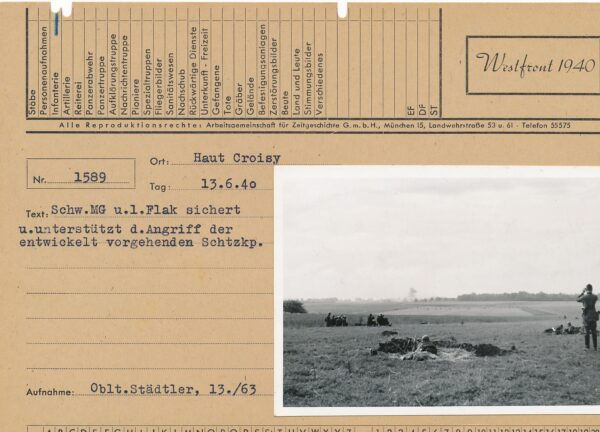 Stäbe
Personenaufnahmen
Infanterie
Artillerie
Reiterei
Panzerabwehr
Panzertruppe
Aufklärungstruppe
Nachrichtentruppe
Pioniere
Spezialtruppen
Fliegerbilder
Sanitätswesen
Nachschub
Rückwärtige Dienste
Unterkunft - Freizeit
Gefangene
Tote
Gräber
Gelände
Befestigungsanlagen
Zerstörungsbilder
Beute
Land und Leute
Stimmungsbilder
Verschiedenes
EF
DF
ST
Westfront 1940
Alle Reproduktionsrechte: Arbeitsgemeinschaft für Zeitgeschichte G.m.b.H., München 15, Landwehrstraße 53 u. 61 - Telefon 55575
Ort: Haut Croisy
Nr. 1589
Tag: 13.6.40
Text: Schw.MG u.l.Flak sichert
u.unterstützt d.Angriff der
entwickelt vorgehenden Schtzkp.
Aufnahme: Oblt.Städtler, 13./63
A B C D E F G H I J K L M N O P Q R S T U V W X Y Z 1 2 3 4 5 6 7 8 9 10 11 12 13 14 15 16 17 18 19 20